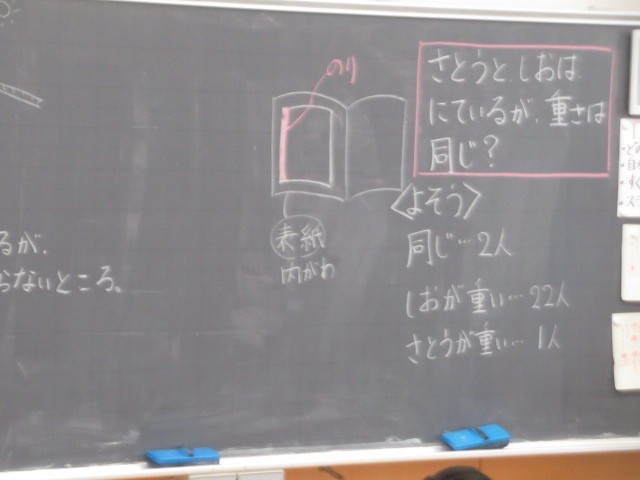 るが、
らないところ。
のり
表紙
内がわ
さとうと、しおは
にているが、重さは
同じ？
＜よそう＞
同じ…2人
しおが重い…22人
さとうが重い…1人